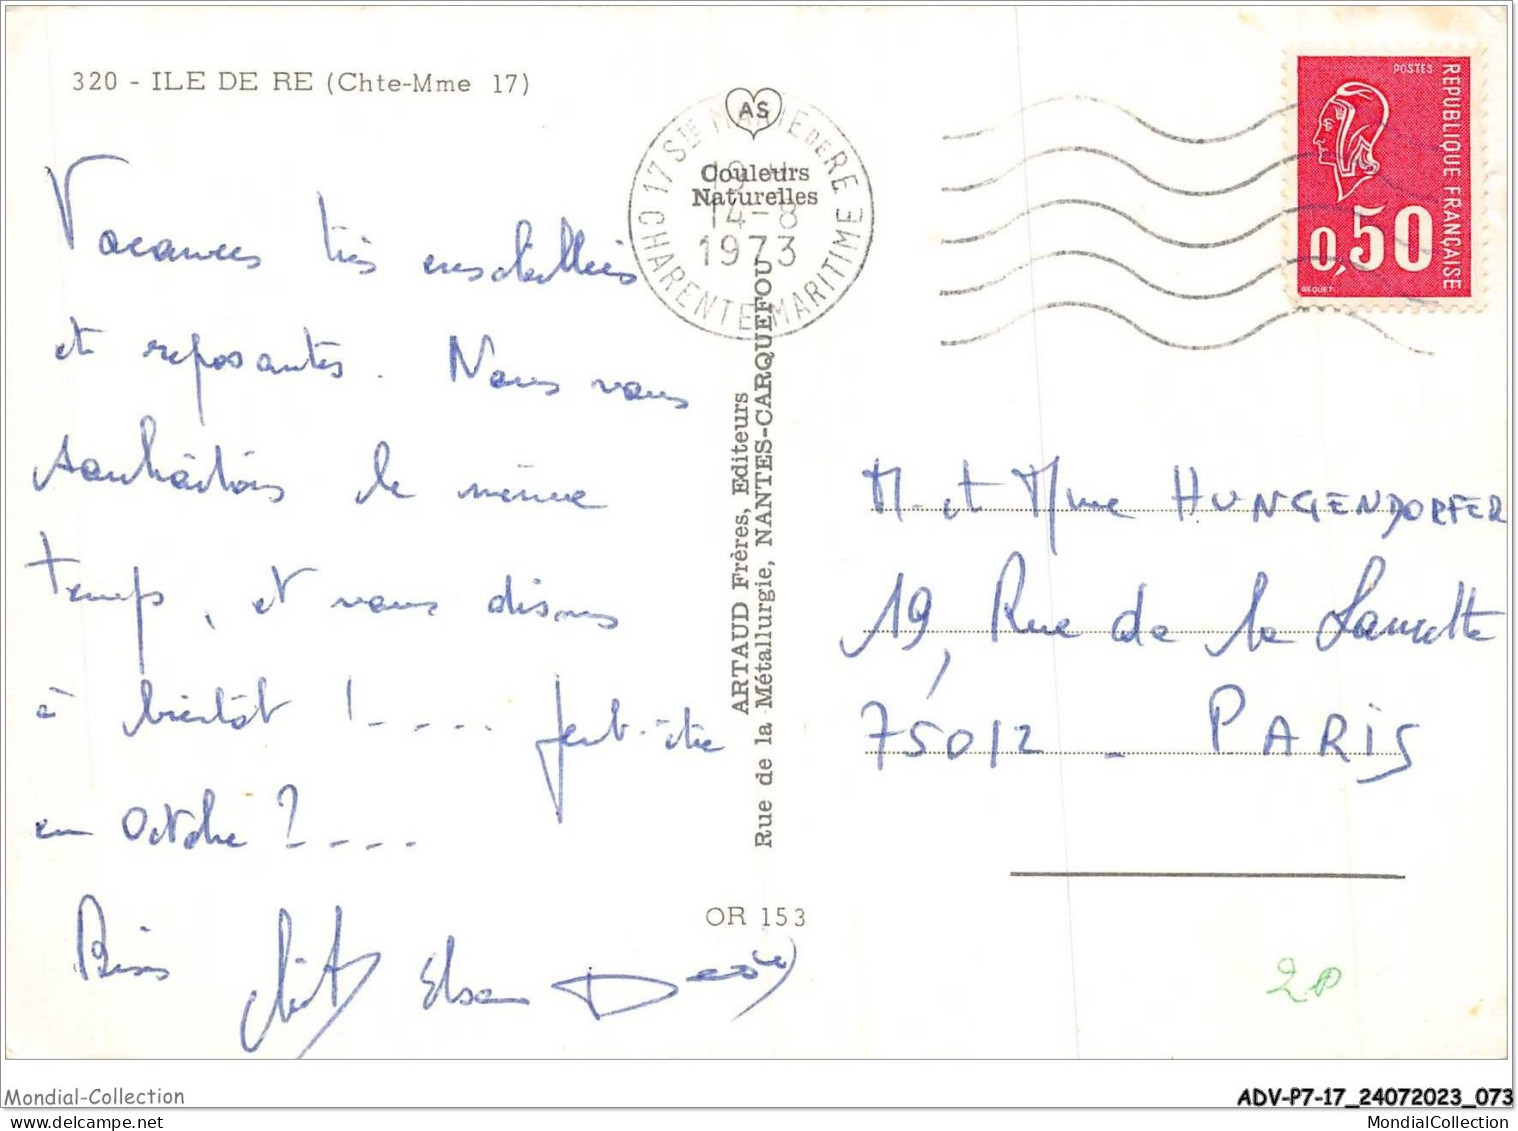 320 - ILE DE RE (Chte-Mme 17)
AS
Couleurs
Naturelles
17 STE MARIE DE RE
14-8
1973
CHARENTE MARITIME
POSTES
REPUBLIQUE FRANÇAISE
0,50
BEQUET
Vacances très ensoleillées
et reposantes. Nous vous
souhaitons le même
temps, et vous disons
à bientôt !---- Peut-être
en Octobre ?----
Bises Elsa
ARTAUD Frères, Editeurs
Rue de la Métallurgie, NANTES-CARQUEFOU
OR 153
M. et Mme HUNGENDORFER
19, Rue de la
75012 - PARIS
Mondial-Collection
Paris
ADV-P7-17_24072023_073
MondialCollection